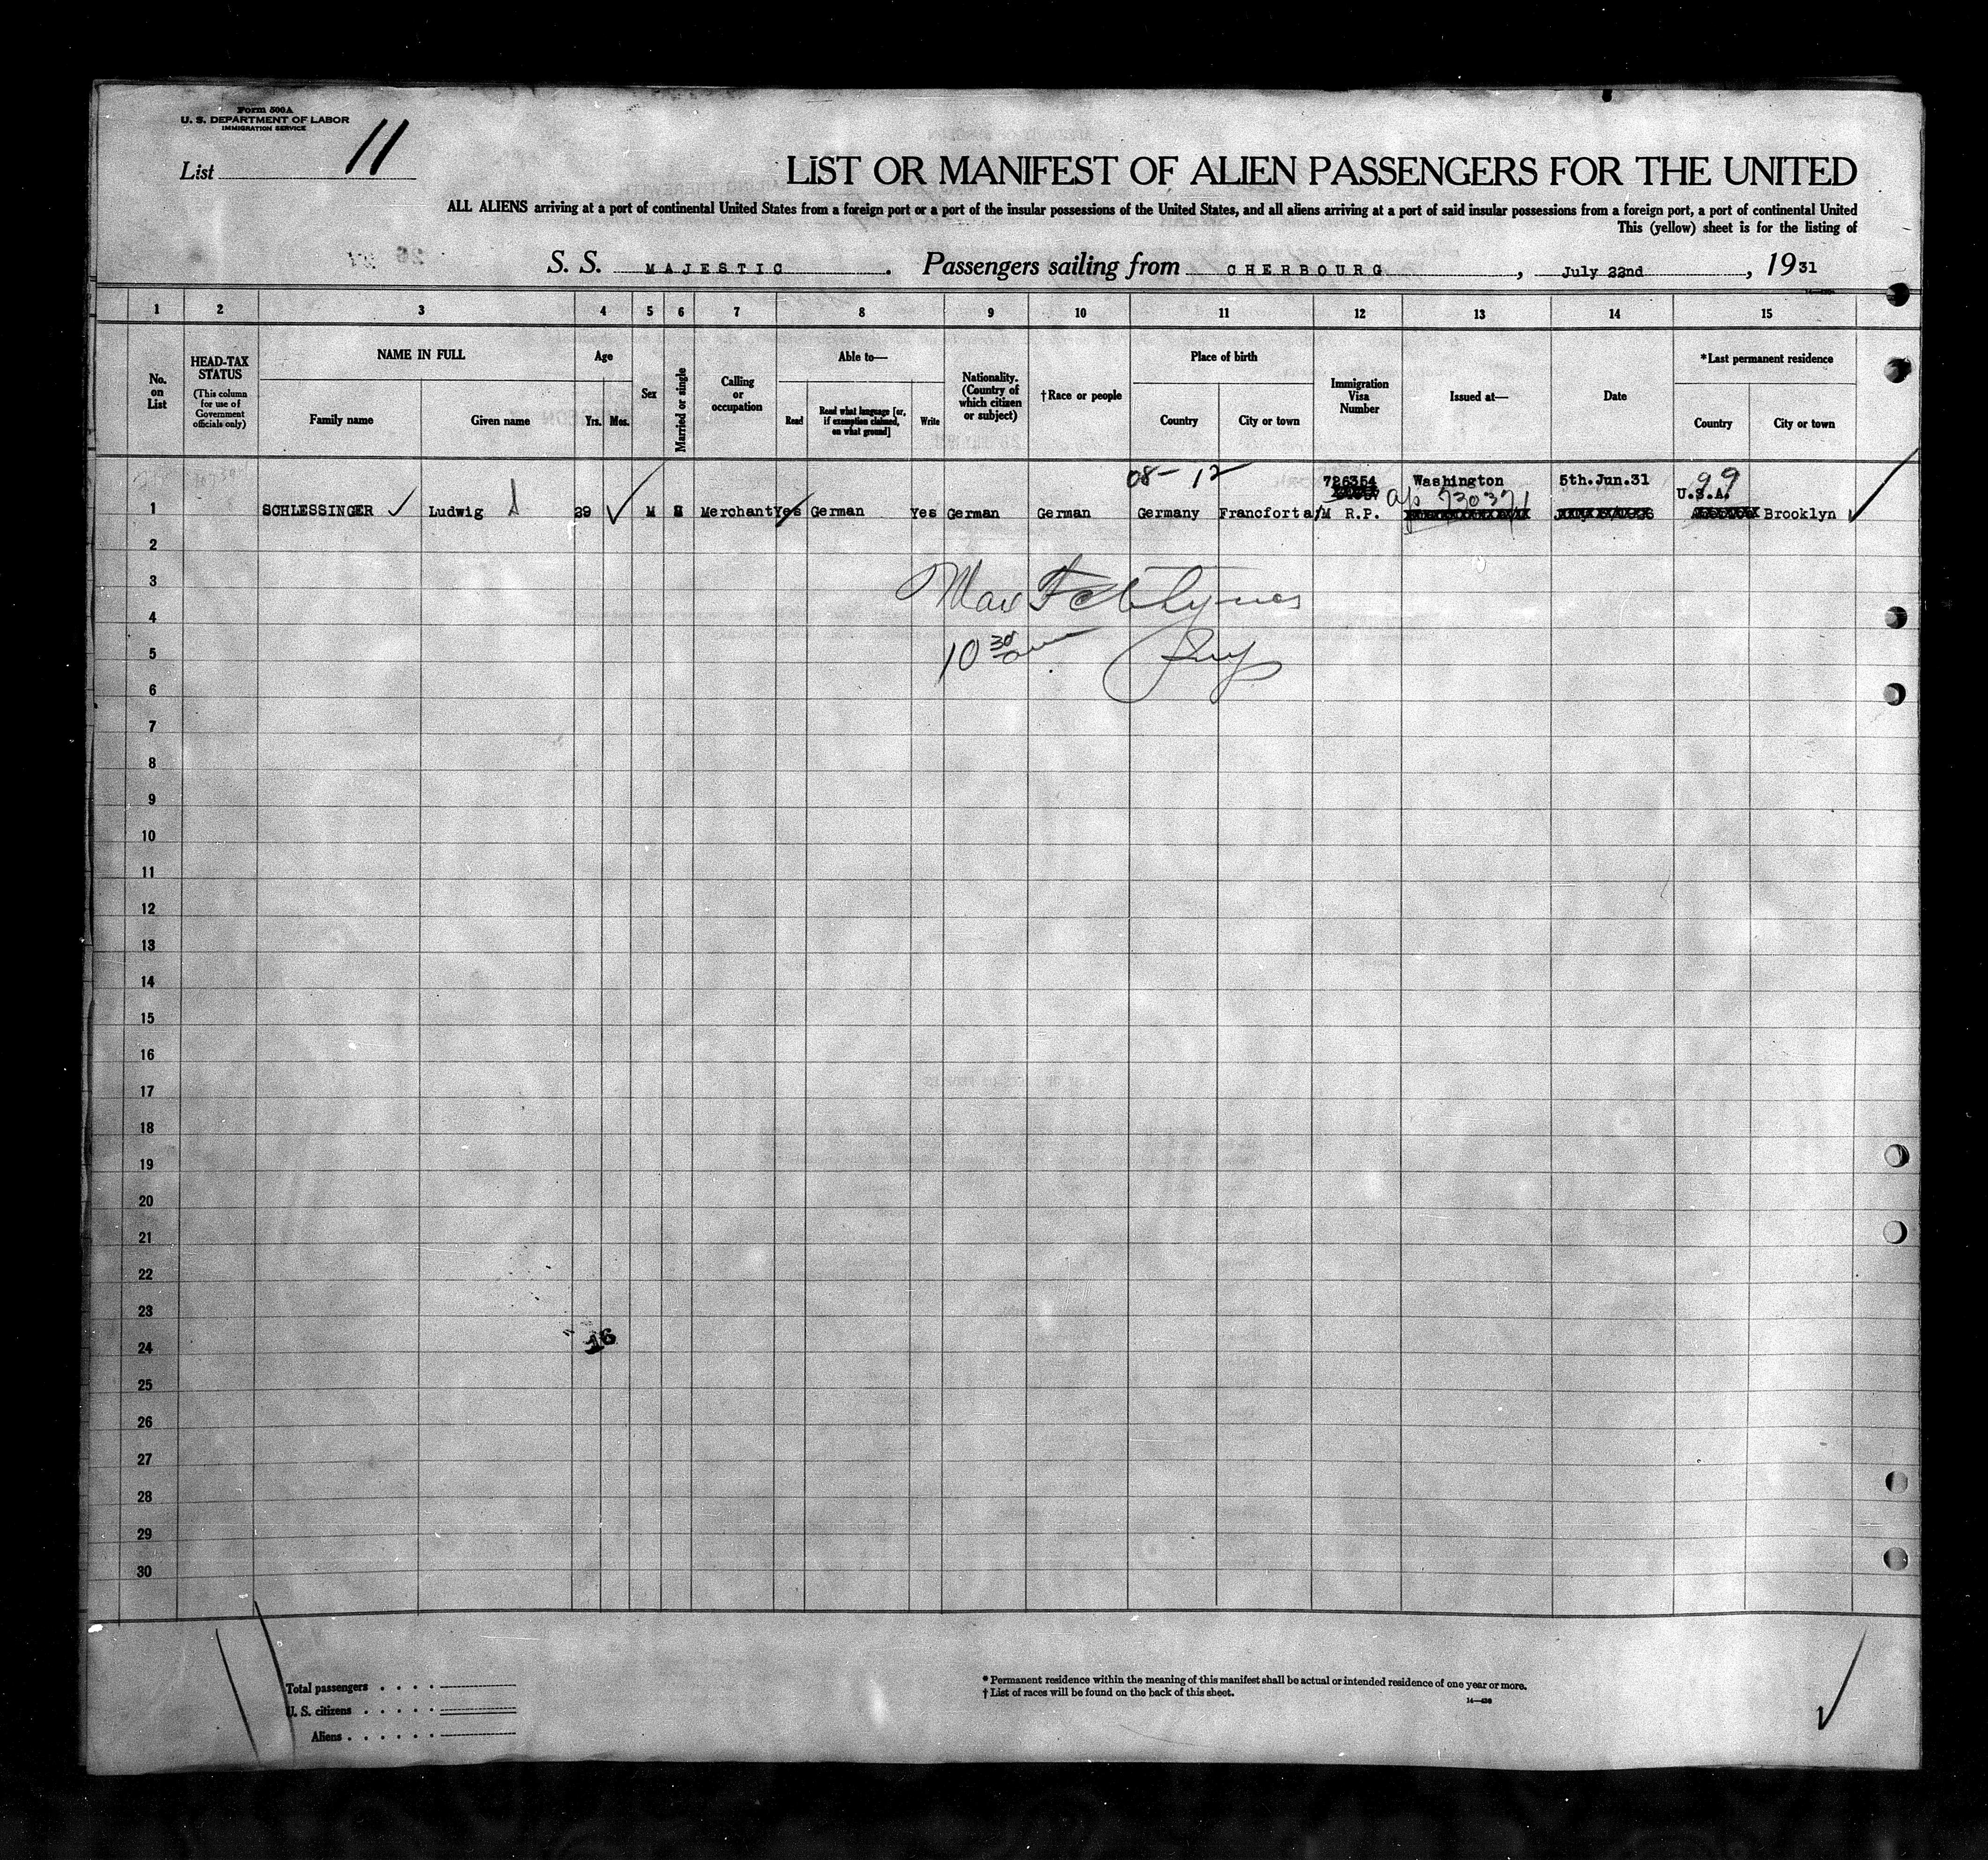 Form 500A
U. S. DEPARTMENT OF LABOR
IMMIGRATION SERVICE
List 11
LIST OR MANIFEST OF ALIEN PASSENGERS FOR THE UNITED
ALL ALIENS arriving at a port of continental United States from a foreign port or a port of the insular possessions of the United States, and all aliens arriving at a port of said insular possessions from a foreign port, a port of continental United
This (yellow) sheet is for the listing of
S. S. MAJESTIC. Passengers sailing from CHERBOURG, July 22nd, 1931
1 2 3 4 5 6 7 8 9 10 11 12 13 14 15
No. on List
HEAD-TAX STATUS
(This column for use of Government officials only)
NAME IN FULL
Family name Given name
Age
Yrs. Mos.
Sex
Married or single
Calling or occupation
Able to—
Read
Read what language [or, if exemption claimed, on what ground]
Write
Nationality. (Country of which citizen or subject)
†Race or people
Place of birth
Country City or town
Immigration Visa Number
Issued at—
Date
*Last permanent residence
Country City or town
08-12 726354 Washington 5th.Jun.31 99
730371 U.S.A.
1 SCHLESSINGER Ludwig 29 M S Merchant Yes German Yes German German Germany Francfort a/M R.P. Brooklyn
2
3
4
10 30
5
6
7
8
9
10
11
12
13
14
15
16
17
18
19
20
21
22
23
24
25
26
27
28
29
30
16
Total passengers
U. S. citizens
Aliens
* Permanent residence within the meaning of this manifest shall be actual or intended residence of one year or more.
† List of races will be found on the back of this sheet.